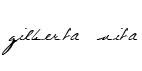 gilberta vita